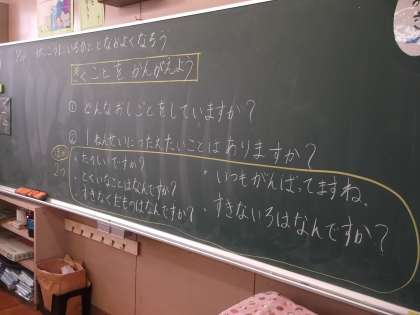 がっこうにいるひととなかよくなろう
きくことをかんがえよう
① どんなおしごとをしていますか？
② 1ねんせいにつたえたいことはありますか？
・たのしいですか？
・いつもがんばってますね。
・とくいなことはなんですか？
・すきなくだものはなんですか？
・すきないろはなんですか？